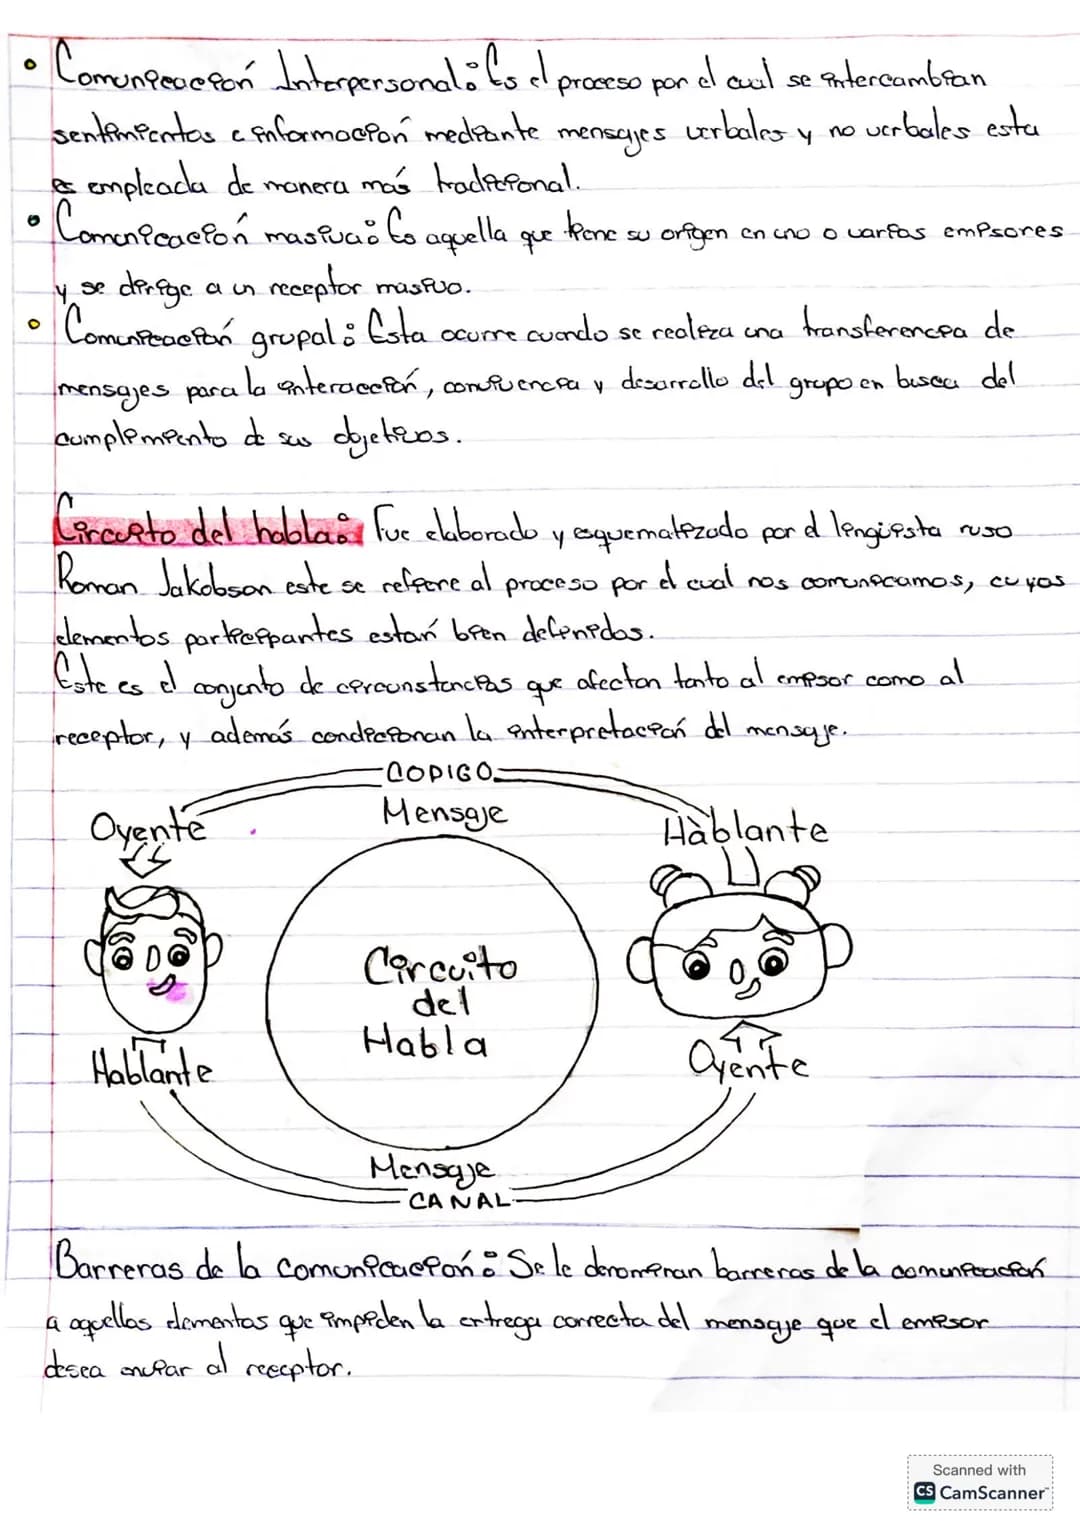 Comunicación Interpersonal: Es el proceso por el cual se intercambian
sentimientos e información mediante mensajes verbales y no verbales esta
es empleada de manera más tradicional.
Comunicación masiva: Es aquella que tiene su origen en uno o varias emisores
y se dirige a un receptor masivo.
Comunicación grupal: Esta ocurre cuando se realiza una transferencia de
mensajes para la interacción, convivencia y desarrollo del grupo en busca del
cumplimiento de sus objetivos.
Circuito del habla: Fue elaborado y esquematizado por el lingüista ruso
Roman Jakobson este se refiere al proceso por el cual nos comunicamos, cuyos
elementos participantes están bien definidos.
Este es el conjunto de circunstancias que afectan tanto al emisor como al
receptor, y además condicionan la interpretación del mensaje.
CODIGO
Mensaje
Oyente
Hablante
Circuito
del
Habla
Hablante
Oyente
Mensaje
CANAL
Barreras de la comunicación: Se le denominan barreras de la comunicación
a aquellos elementos que impiden la entrega correcta del mensaje que el emisor
desea enviar al receptor.
Scanned with
CS CamScanner